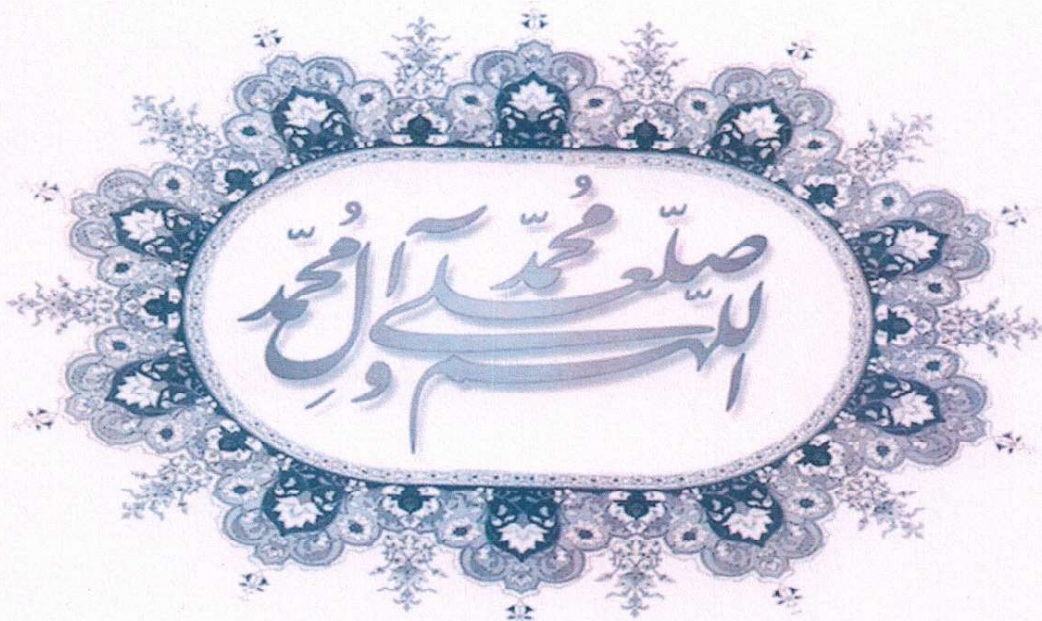 اللّهم صلّ علی مُحمّد و آلِ مُحمّد